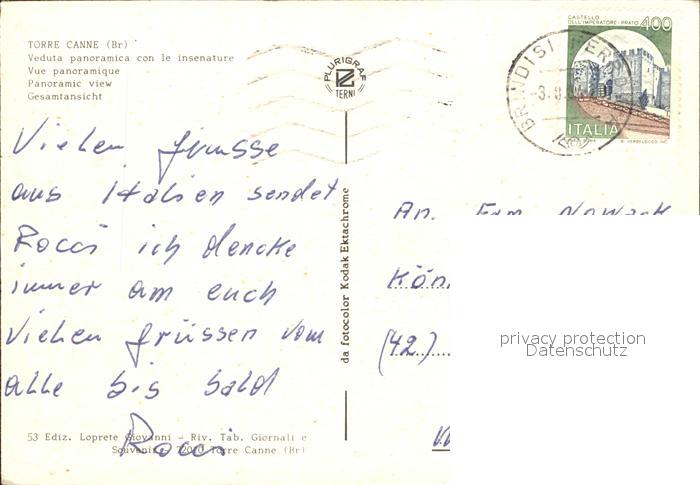 TORRE CANNE (Br)
Veduta panoramica con le insenature
Vue panoramique
Panoramic view
Gesamtansicht
PLURIGRAF
TERNI
CASTELLO
DELL'IMPERATORE - PRATO 400
ITALIA
BRINDISI FERR
Vielen grusse
aus Italien sendet
Rocci ich dencke
immer am euch
Viehen grüssen vom
alle bis bald
Rocci
53 Ediz. Loprete Giovanni - Riv. Tab. Giornali e
Souvenirs - 72010 Torre Canne (Br)
da fotocolor Kodak Ektachrome
An. Fam Nowack
Kön
(42)
privacy protection
Datenschutz